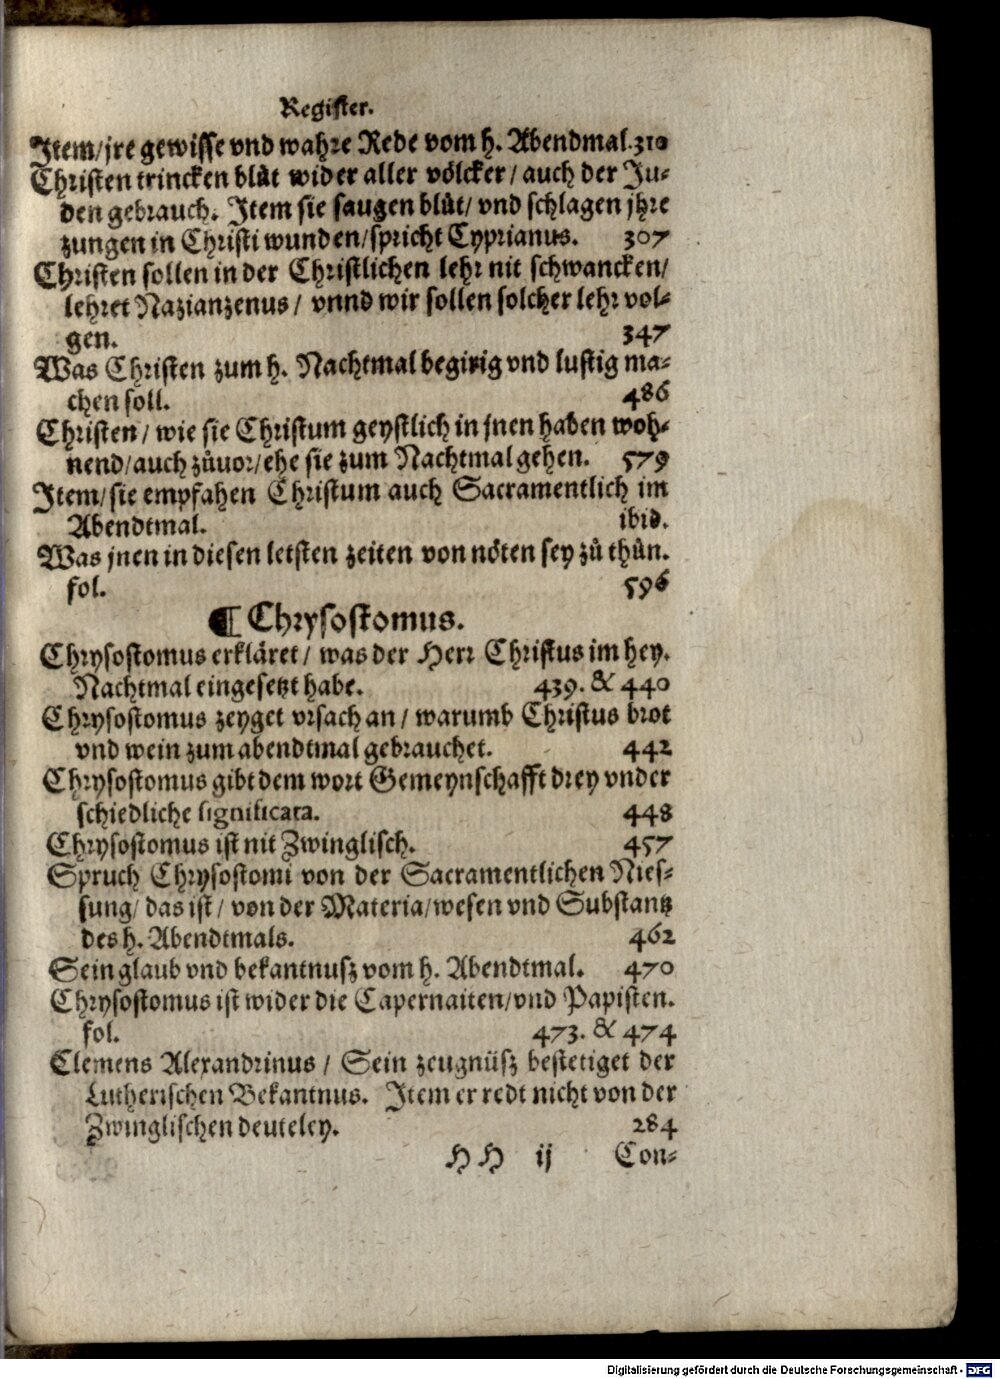 Register.
Item/ jre gewisse vnd wahre Rede vom h. Abendmal. 310
Christen trincken blůt wider aller völcker / auch der Ju-
den gebrauch. Item sie saugen blůt/ vnd schlagen jhre
zungen in Christi wunden/ spricht Cyprianus. 307
Christen sollen in der Christlichen lehr nit schwancken/
lehret Nazianzenus / vnnd wir sollen solcher lehr vol-
gen. 347
Was Christen zum h. Nachtmal begirig vnd lustig ma-
chen soll. 486
Christen / wie sie Christum geystlich in jnen haben woh-
nend/ auch zůuor/ ehe sie zum Nachtmal gehen. 579
Item/ sie empfahen Christum auch Sacramentlich im
Abendtmal. ibid.
Was jnen in diesen letsten zeiten von nöten sey zů thůn.
fol. 596
¶ Chrysostomus.
Chrysostomus erkläret / was der Herr Christus im hey.
Nachtmal eingesetzt habe. 439. & 440
Chrysostomus zeyget vrsach an / warumb Christus brot
vnd wein zum abendtmal gebrauchet. 442
Chrysostomus gibt dem wort Gemeynschafft drey vnder
schiedliche significata. 448
Chrysostomus ist nit Zwinglisch. 457
Spruch Chrysostomi von der Sacramentlichen Nies-
sung/ das ist / von der Materia/ wesen vnd Substantz
des h. Abendtmals. 462
Sein glaub vnd bekantnusz vom h. Abendtmal. 470
Chrysostomus ist wider die Capernaiten/ vnd Papisten.
fol. 473. & 474
Clemens Alexandrinus / Sein zeugnüsz bestetiget der
Lutherischen Bekantnus. Item er redt nicht von der
Zwinglischen deuteley. 284
HH ij Con-
Digitalisierung gefördert durch die Deutsche Forschungsgemeinschaft - DFG